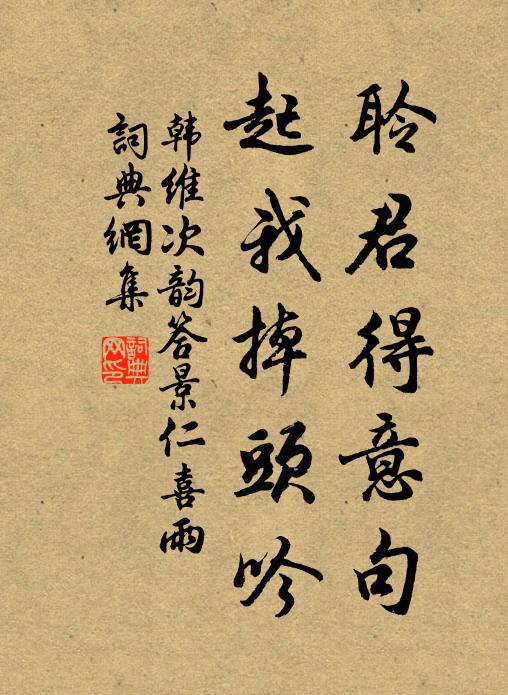 聆君得意句
起我掉頭吟
韩维次韵答景仁喜雨
詞典網集
詞典网印